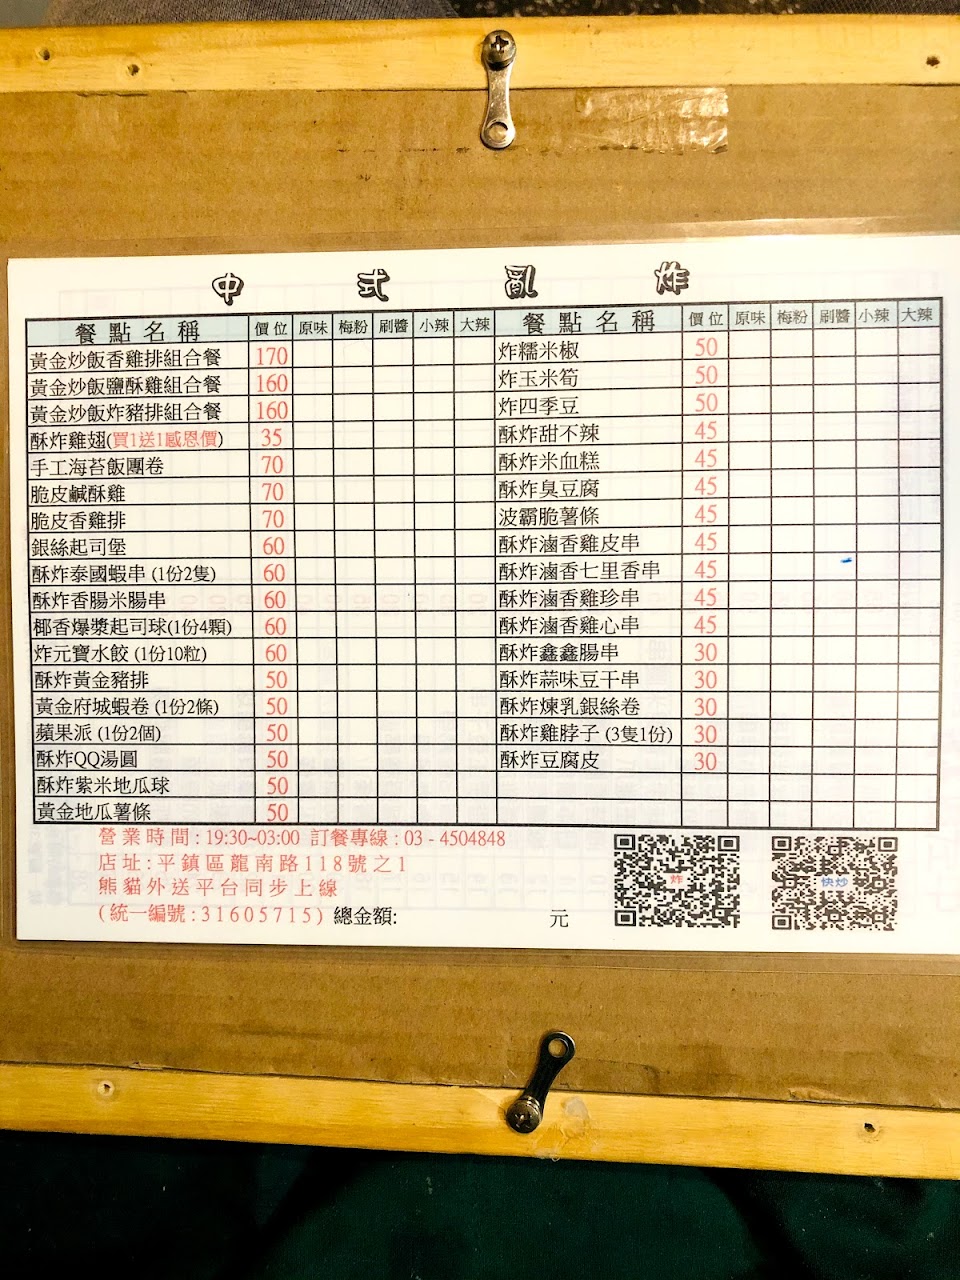 中式亂炸
餐點名稱 價位 原味 梅粉 刷醬 小辣 大辣 餐點名稱 價位 原味 梅粉 刷醬 小辣 大辣
黃金炒飯香雞排組合餐 170 炸糯米椒 50
黃金炒飯鹽酥雞組合餐 160 炸玉米筍 50
黃金炒飯炸豬排組合餐 160 炸四季豆 50
酥炸雞翅(買1送1感恩價) 35 酥炸甜不辣 45
手工海苔飯團卷 70 酥炸米血糕 45
脆皮鹹酥雞 70 酥炸臭豆腐 45
脆皮香雞排 70 波霸脆薯條 45
銀絲起司堡 60 酥炸滷香雞皮串 45
酥炸泰國蝦串 (1份2隻) 60 酥炸滷香七里香串 45
酥炸香腸米腸串 60 酥炸滷香雞珍串 45
椰香爆漿起司球(1份4顆) 60 酥炸滷香雞心串 45
炸元寶水餃 (1份10粒) 60 酥炸鑫鑫腸串 30
酥炸黃金豬排 50 酥炸蒜味豆干串 30
黃金府城蝦卷 (1份2條) 50 酥炸煉乳銀絲卷 30
蘋果派 (1份2個) 50 酥炸雞脖子 (3隻1份) 30
酥炸QQ湯圓 50 酥炸豆腐皮 30
酥炸紫米地瓜球 50
黃金地瓜薯條 50
營業時間 : 19:30~03:00 訂餐專線 : 03 - 4504848
店址 : 平鎮區龍南路118號之1
熊貓外送平台同步上線
(統一編號 : 31605715) 總金額: 元
炸
快炒